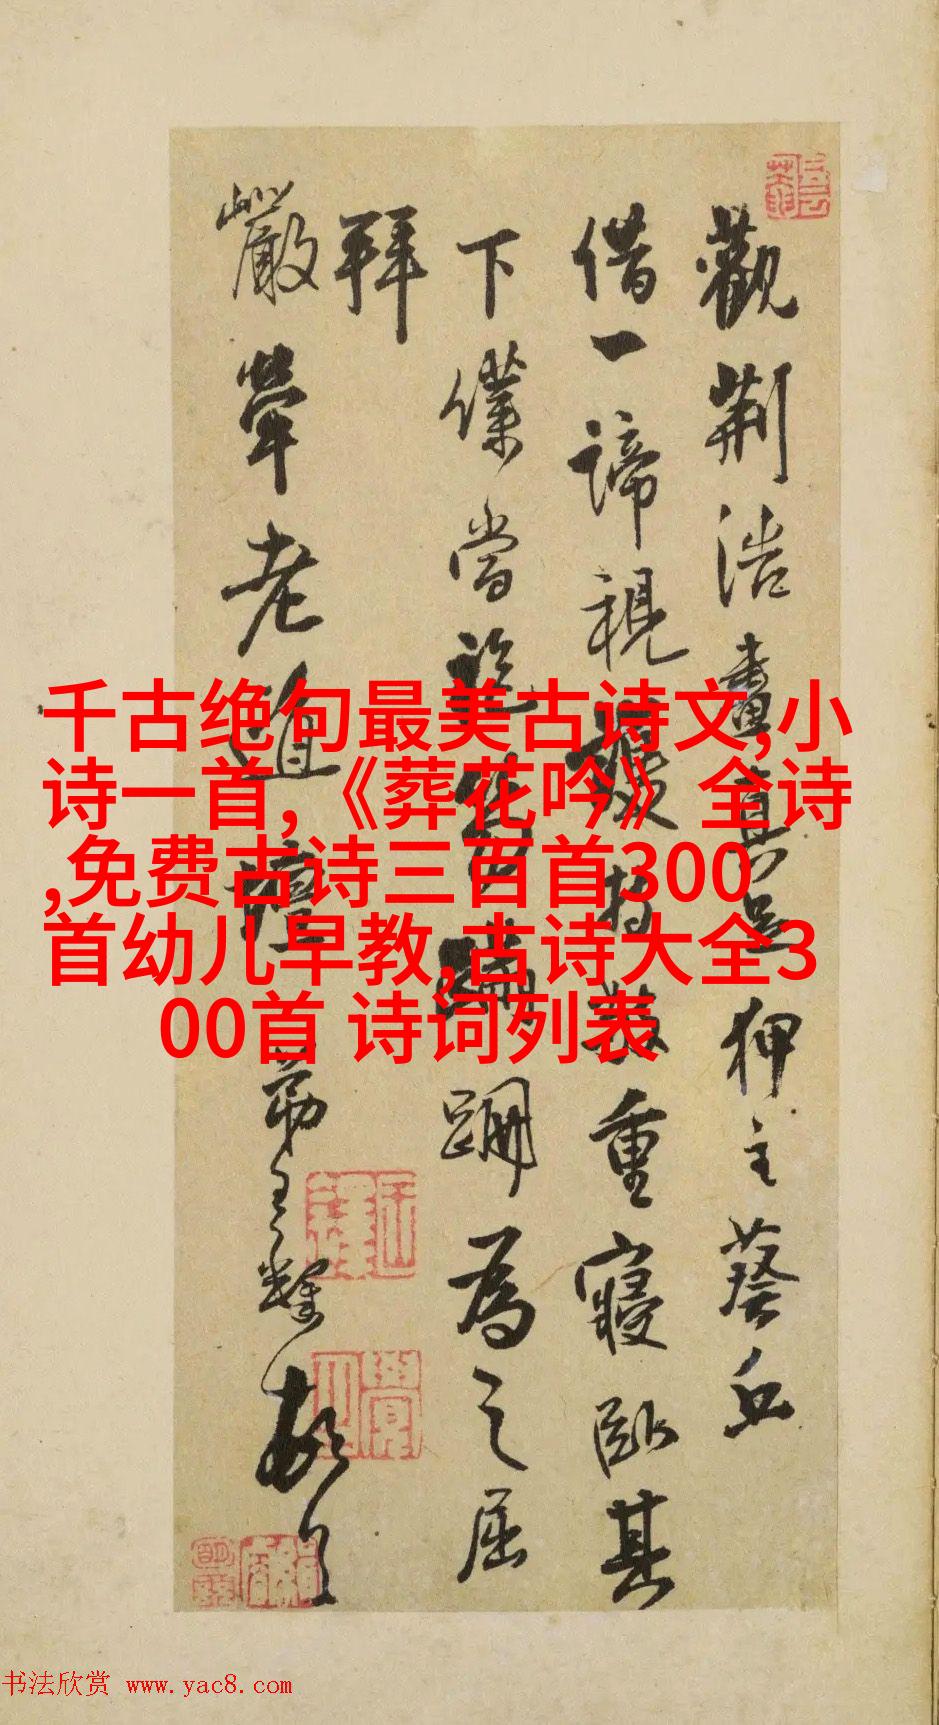 觀荆浩畫真是狎主葵丘
借一諦視重寢臥其
下僕當蹣跚為之屈
拜
嚴犖老道
千古绝句最美古诗文,小
诗一首,《葬花吟》全诗
,免费古诗三百首300
首幼儿早教,古诗大全3
00首 诗词列表
书法欣赏 www.yac8.com